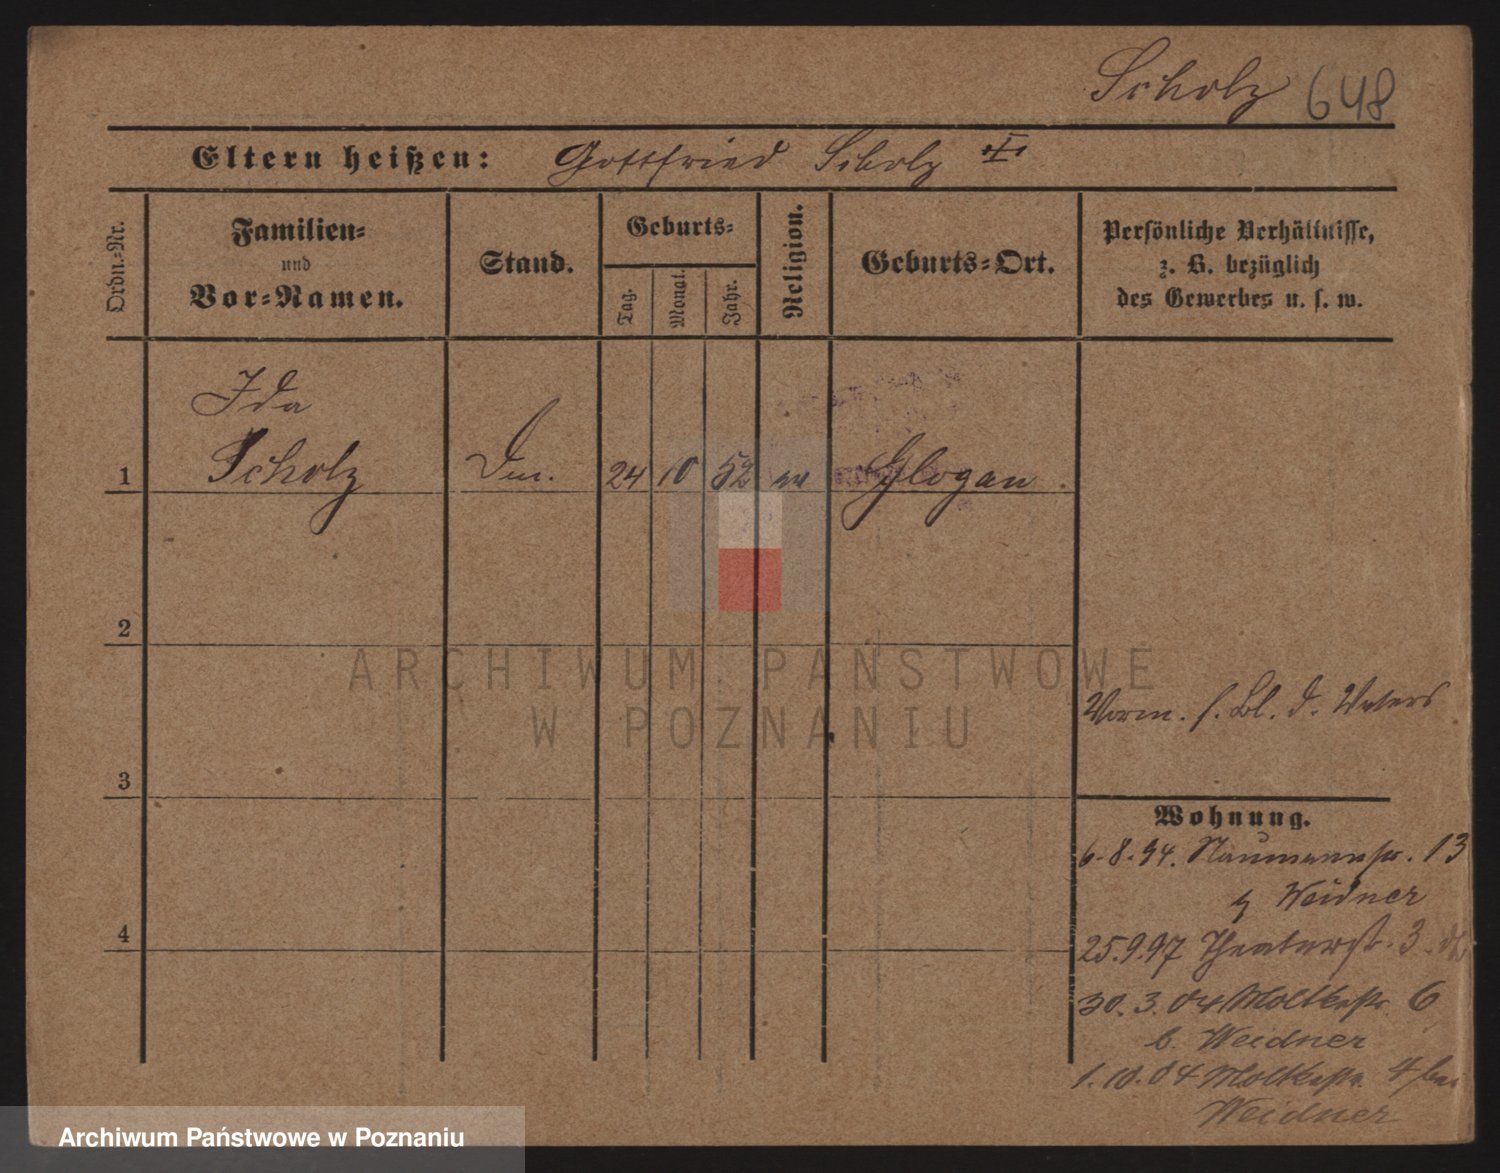 Scholz 648
Eltern heißen: Gottfried Scholz
Ordn.-Nr.
Familien-
und
Vor-Namen.
Stand.
Geburts-
Tag.
Monat.
Jahr.
Religion.
Geburts-Ort.
Persönliche Verhältnisse,
z. B. bezüglich
des Gewerbes u. s. w.
Ida
1 Scholz 24 10 52 ev Glogau.
2
ARCHIWUM PAŃSTWOWE
W POZNANIU
Vorm. s. Bl. d. Vaters
3
Wohnung.
6.8.94. Naumannstr. 13
b Weidner
4
25.9.97 Theaterstr. 3.
30.3.04 Moltkestr. 6
b. Weidner
1.10.04 Moltkestr. 4 bei
Weidner
Archiwum Państwowe w Poznaniu